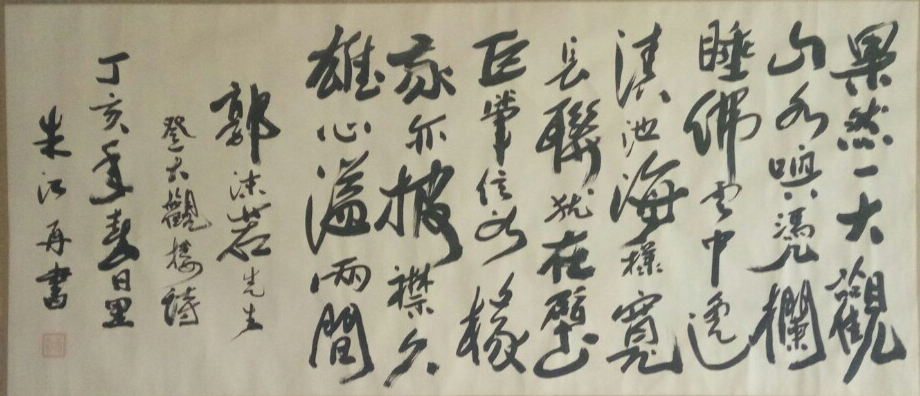 果然一大觀
山水喚憑欄
睡佛云中逸
滇池海樣寬
長聯犹在壁
巨筆信如椽
我亦披襟久
雄心溢兩間
郭沫若先生
登大觀樓詩
丁亥年春日里
朱江再書